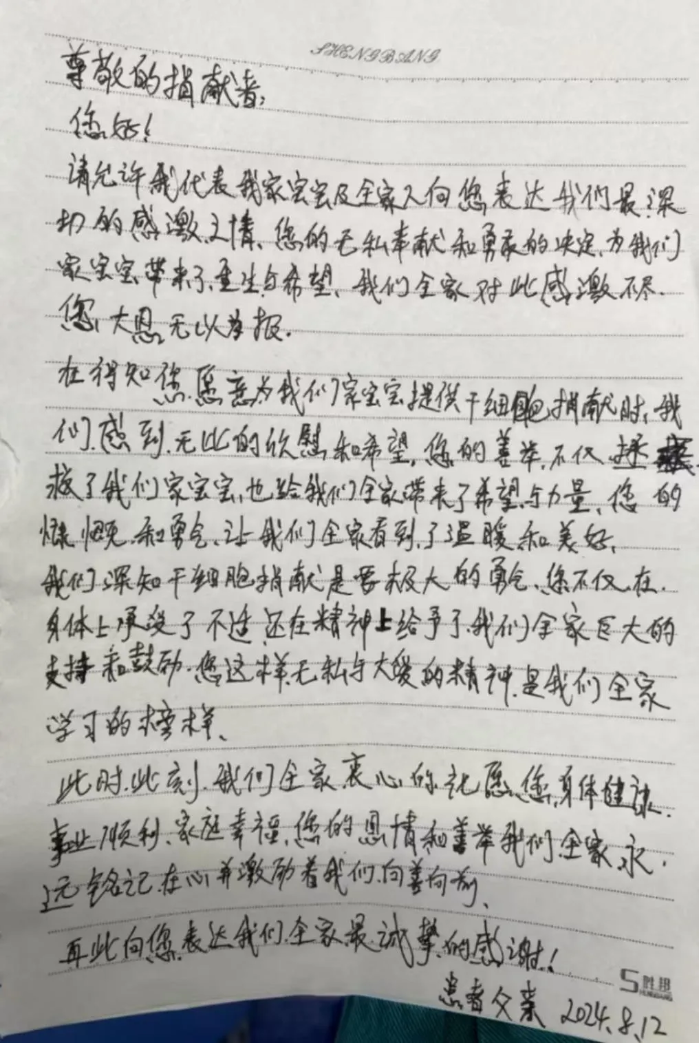 SHENGBANG
尊敬的捐献者：
您好！
请允许我代表我家宝宝及全家人向您表达我们最深
切的感激之情、您的无私奉献和勇敢的决定、为我们
家宝宝带来了重生与希望、我们全家对此感激不尽.
您、大恩无以为报.
在得知您愿意为我们家宝宝提供干细胞捐献时、我
们感到无比的欣慰和希望、您的善举、不仅拯
救了我们家宝宝、也给我们全家带来了希望与力量、您的
慷慨和勇气、让我们全家看到了温暖和美好、
我们深知干细胞捐献是需极大的勇气、您不仅在
身体上承受了不适还在精神上给予了我们全家巨大的
支持和鼓励.您这样无私与大爱的精神是我们全家
学习的榜样、
此时此刻、我们全家衷心的祝愿您、身体健康.
事业顺利、家庭幸福、您的恩情和善举我们全家永
远铭记在心并激励着我们向善向前、
再此向您表达我们全家最诚挚的感谢！
胜邦
SHENGBANG
患者父亲 2024.8.12